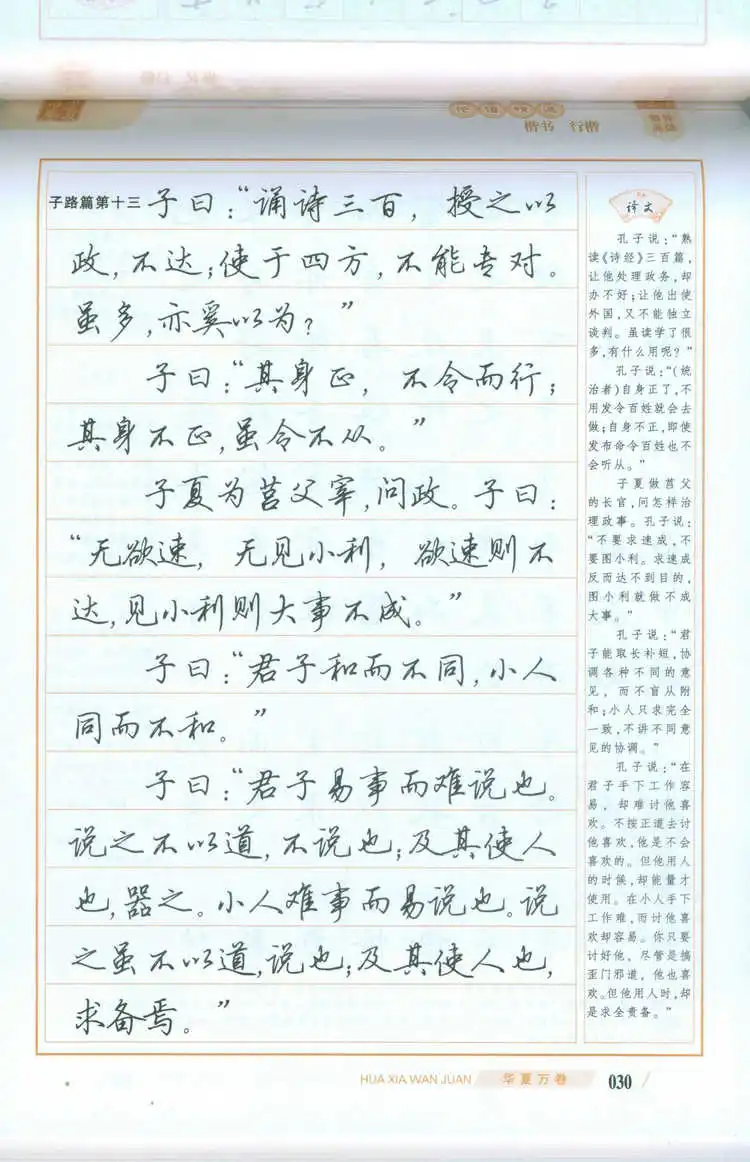 楷书 行楷
子路篇第十三 子曰：“诵诗三百，授之以
政，不达；使于四方，不能专对。
虽多，亦奚以为？”
子曰：“其身正，不令而行；
其身不正，虽令不从。”
子夏为莒父宰，问政。子曰：
“无欲速，无见小利，欲速则不
达，见小利则大事不成。”
子曰：“君子和而不同，小人
同而不和。”
子曰：“君子易事而难说也。
说之不以道，不说也；及其使人
也，器之。小人难事而易说也。说
之虽不以道，说也；及其使人也，
求备焉。”
译文
孔子说：“熟
读《诗经》三百篇，
让他处理政务，却
办不好；让他出使
外国，又不能独立
谈判。虽读学了很
多，有什么用呢？”
孔子说：“（统
治者）自身正了，不
用发令百姓就会去
做；自身不正，即使
发布命令百姓也不
会听从。”
子夏做莒父
的长官，问怎样治
理政事。孔子说：
“不要求速成，不
要图小利。求速成
反而达不到目的，
图小利就做不成
大事。”
孔子说：“君
子能取长补短，协
调各种不同的意
见，而不盲从附
和；小人只求完全
一致，不讲不同意
见的协调。”
孔子说：“在
君子手下工作容
易，却难讨他喜
欢。不按正道去讨
他喜欢，他是不会
喜欢的。但他用人
的时候，却能量才
使用。在小人手下
工作难，而讨他喜
欢却容易。你只要
讨好他，尽管是搞
歪门邪道，他也喜
欢。但他用人时，却
是求全责备。”
HUA XIA WAN JUAN 华夏万卷 030